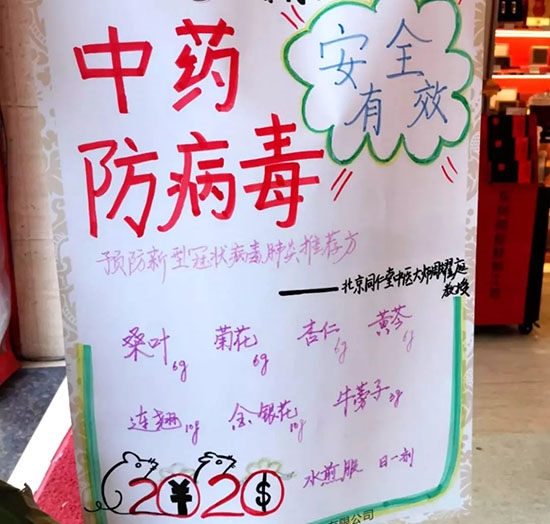 中药
防病毒
安全
有效
预防新型冠状病毒肺炎推荐方
——北京同仁堂中医大师翟耀庭
教授
桑叶6g 菊花6g 杏仁6g 黄芩6g
连翘10g 金银花10g 牛蒡子3g
水煎服 日一剂
2¥2$
有限公司